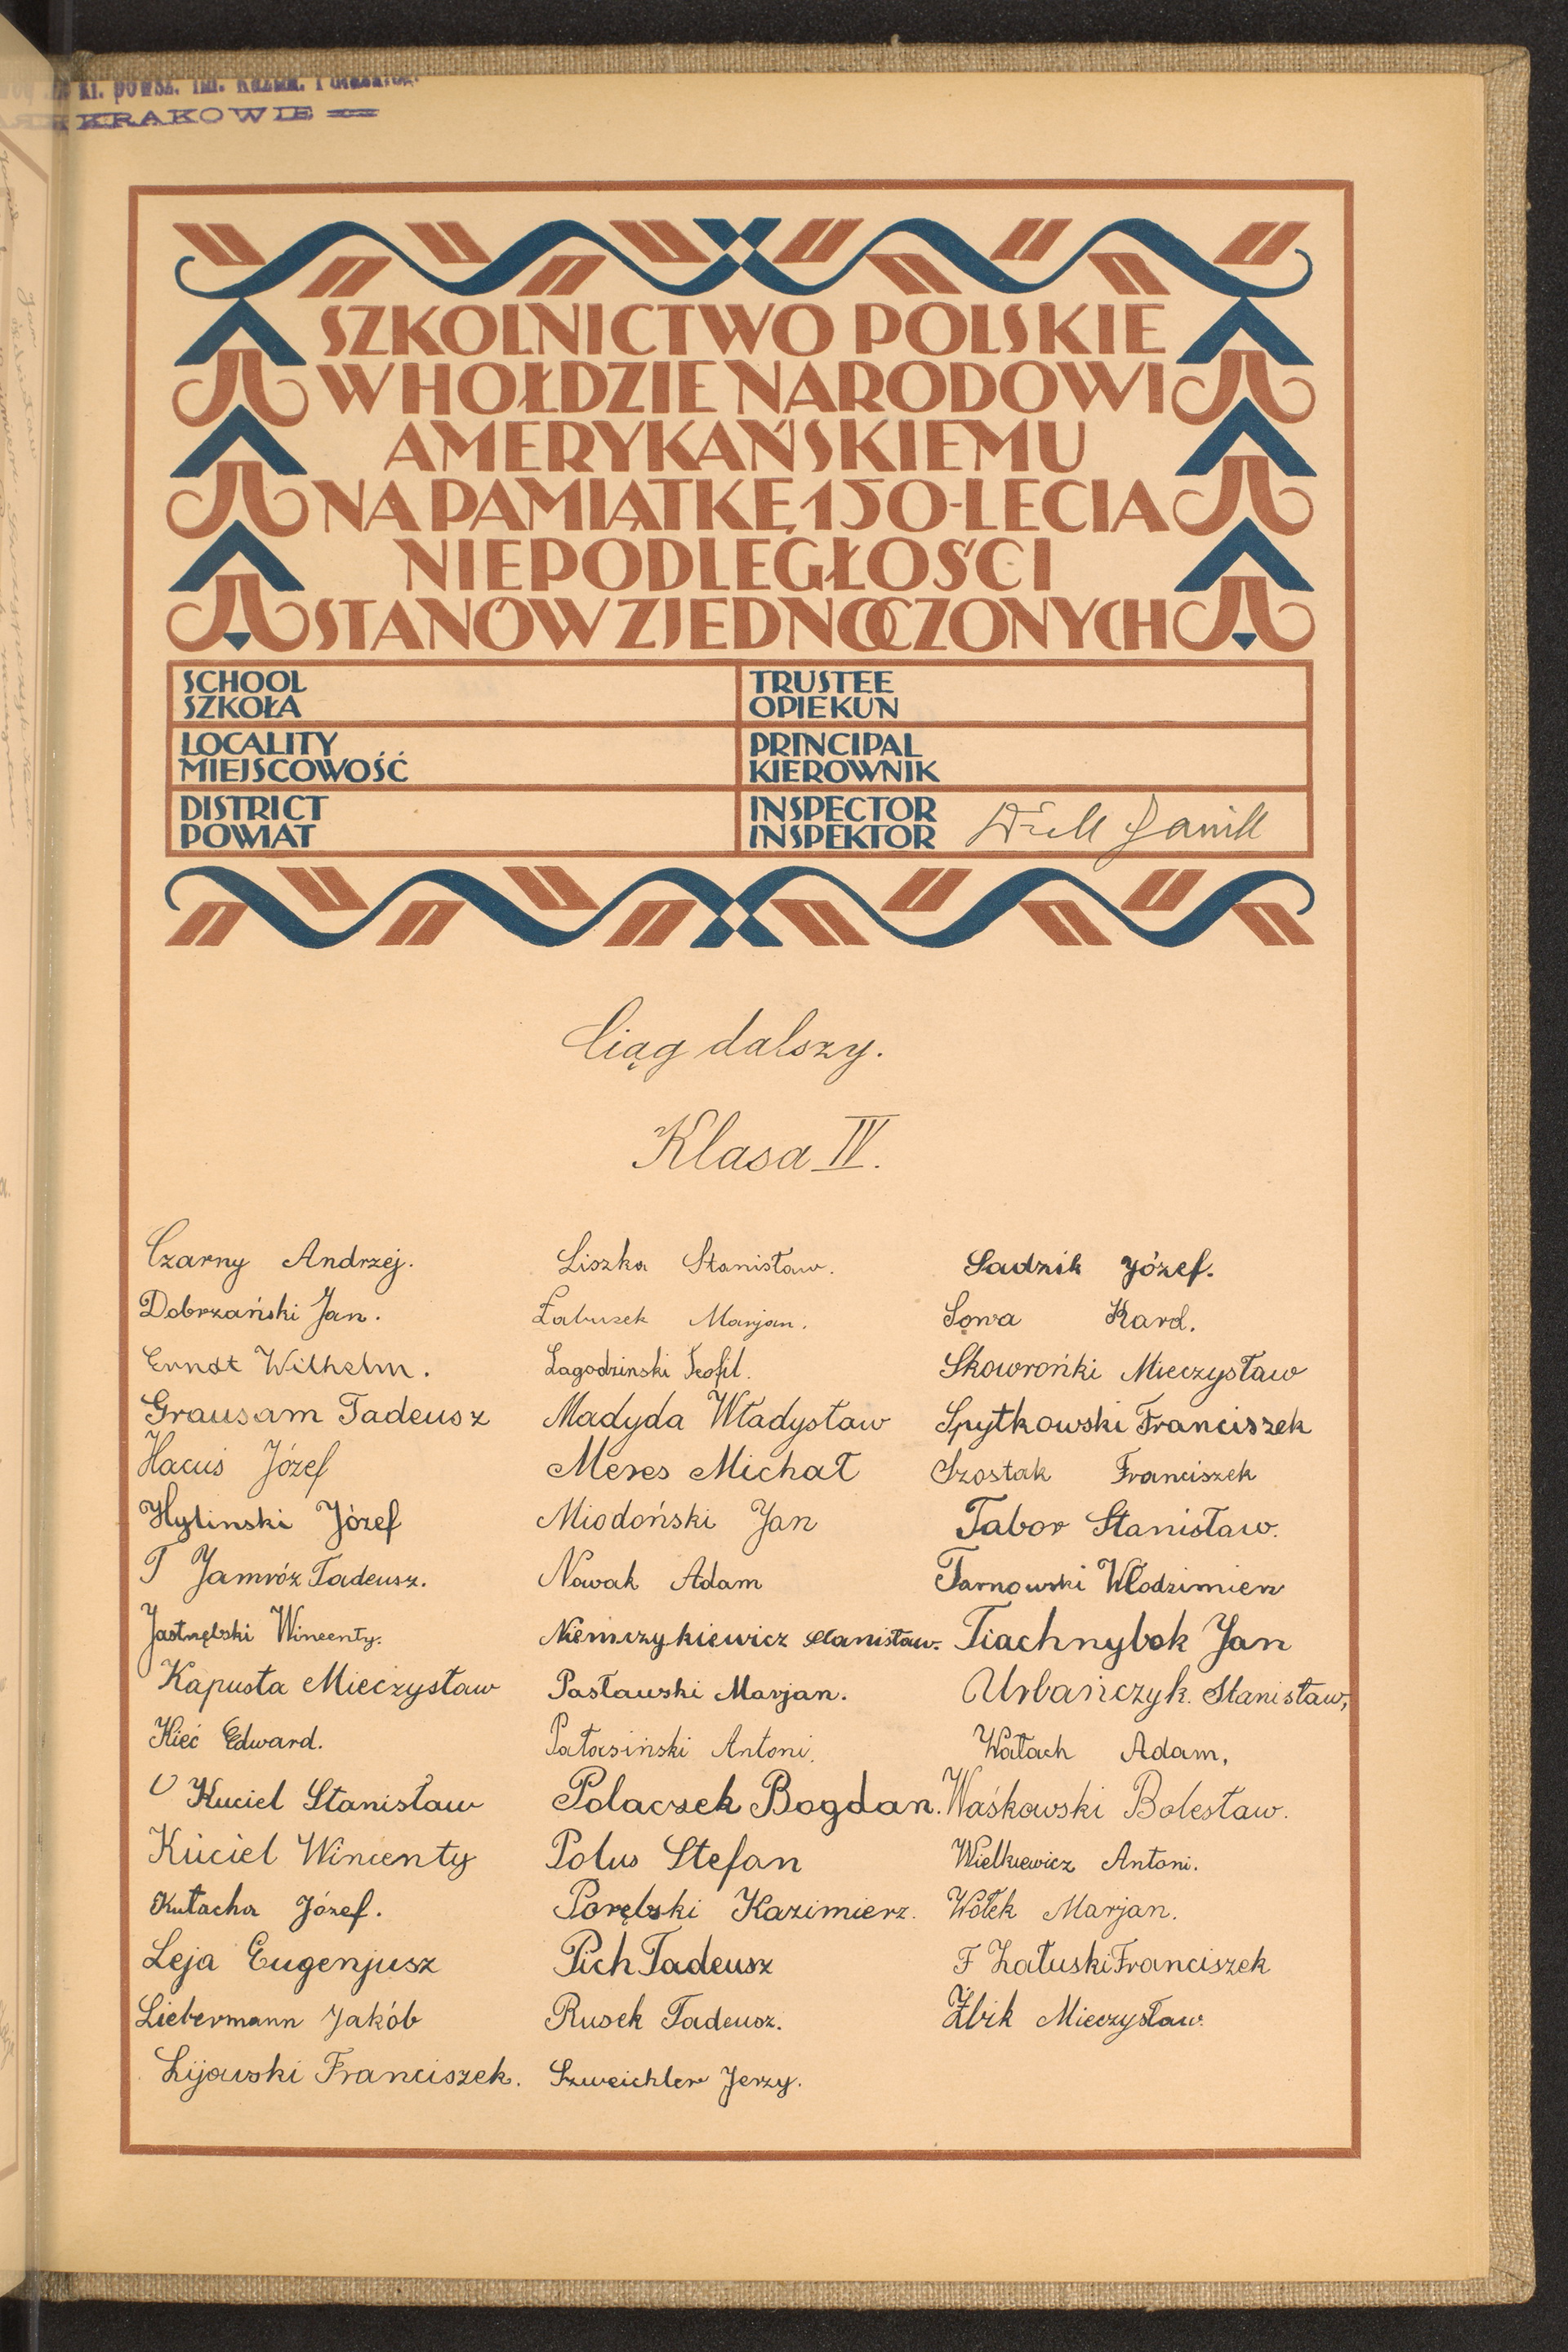 KRAKOWIE
SZKOLNICTWO POLSKIE
W HOŁDZIE NARODOWI
AMERYKAŃSKIEMU
NA PAMIĄTKĘ 150-LECIA
NIEPODLEGŁOŚCI
STANÓW ZJEDNOCZONYCH
SCHOOL
SZKOŁA
TRUSTEE
OPIEKUN
LOCALITY
MIEJSCOWOŚĆ
PRINCIPAL
KIEROWNIK
DISTRICT
POWIAT
INSPECTOR
INSPEKTOR
Ciąg dalszy.
Klasa IV.
Czarny Andrzej.
Dobrzański Jan.
Erndt Wilhelm.
Grausam Tadeusz
Hacuś Józef
Hylinski Józef
T Jamróz Tadeusz.
Jastrzębski Wincenty.
Kapusta Mieczysław
Kieć Edward.
Kuciel Stanisław
Kuciel Wincenty
Kułacha Józef.
Leja Eugenjusz
Liebermann Jakób
Lijowski Franciszek.
Liszka Stanisław.
Łabuzek Marjan.
Łagodzinski Teofil.
Madyda Władysław
Meres Michał
Miodoński Jan
Nowak Adam
Niemczykiewicz Stanisław.
Pasławski Marjan.
Patasiński Antoni.
Polaczek Bogdan.
Polus Stefan
Porębski Kazimierz.
Pich Tadeusz
Rusek Tadeusz.
Szweichler Jerzy.
Sadzik Józef.
Sowa Karol.
Skowrońki Mieczysław
Spytkowski Franciszek
Szostak Franciszek
Tabor Stanisław.
Tarnowski Włodzimierz
Tiachnybok Jan
Urbańczyk. Stanisław,
Wałach Adam,
Waśkowski Bolesław.
Wielkiewicz Antoni.
Wołek Marjan.
F Załuski Franciszek
Żbik Mieczysław.